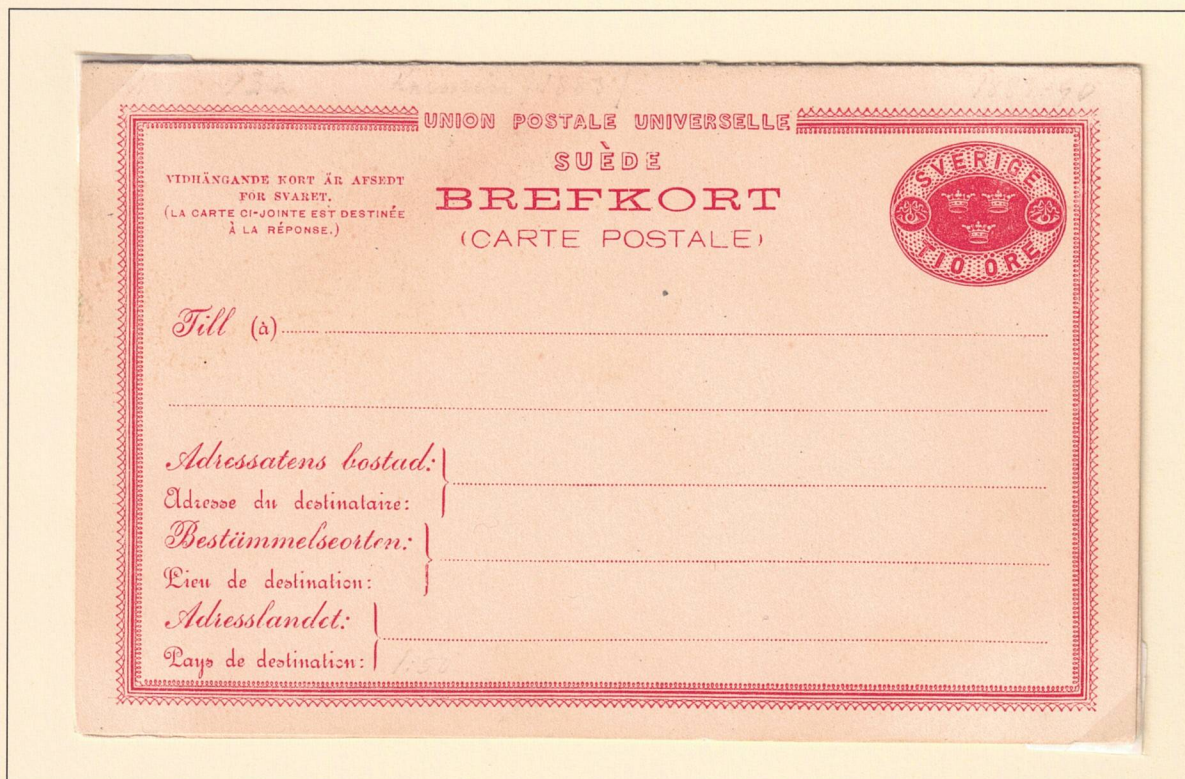 UNION POSTALE UNIVERSELLE
SUÈDE
BREFKORT
(CARTE POSTALE)
VIDHÄNGANDE KORT ÄR AFSEDT
FÖR SVARET.
(LA CARTE CI-JOINTE EST DESTINÉE
À LA RÉPONSE.)
SVERIGE
TIO ÖRE
Till (à)
Adressatens bostad:
Adresse du destinataire:
Bestämmelseorten:
Lieu de destination:
Adresslandet:
Pays de destination: